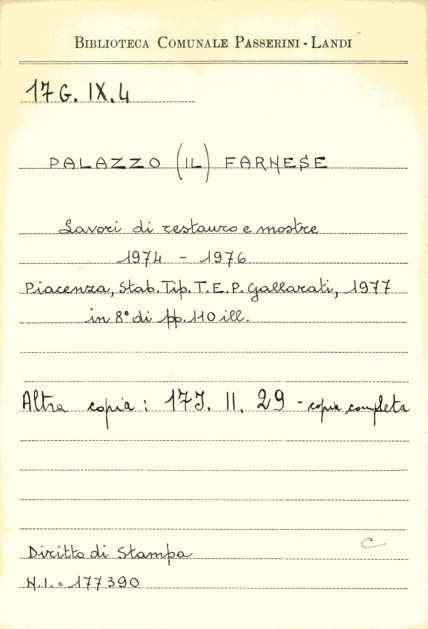 BIBLIOTECA COMUNALE PASSERINI-LANDI
17 G. IX. 4
PALAZZO (IL) FARNESE
Lavori di restauro e mostre
1974 - 1976
Piacenza, Stab. Tip. T.E.P. Gallarati, 1977
in 8° di pp. 110 ill.
Altra copia: 17J. II. 29 - copia completa
C
Diritto di Stampa
N.I. = 177390